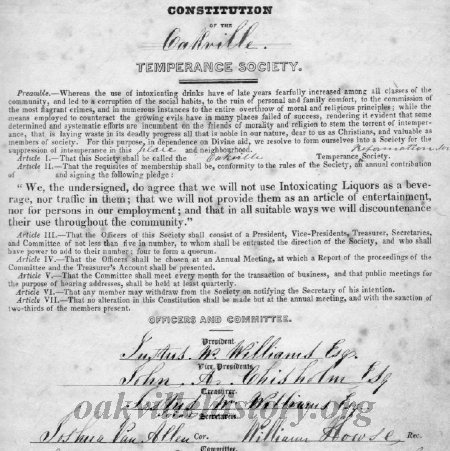 CONSTITUTION
OF THE
Oakville.
TEMPERANCE SOCIETY.
Preamble.—Whereas the use of intoxicating drinks have of late years fearfully increased among all classes of the
community, and led to a corruption of the social habits, to the ruin of personal and family comfort, to the commission of
the most flagrant crimes, and in numerous instances to the entire overthrow of moral and religious principles; while the
means employed to counteract the growing evils have in many places failed of success, rendering it evident that some
determined and systematic efforts are incumbent on the friends of morality and religion to stem the torrent of intemper-
ance, that is laying waste in its deadly progress all that is noble in our nature, dear to us as Christians, and valuable as
members of society. For this purpose, in dependence on Divine aid, we resolve to form ourselves into a Society for the
suppression of intemperance in this place and neighbourhood. Reformation
Article I.—That this Society shall be called the Oakville Temperance Society.
Article II.—That the requisites of membership shall be, conformity to the rules of the Society, an annual contribution
of and signing the following pledge:
"We, the undersigned, do agree that we will not use Intoxicating Liquors as a beve-
rage, nor traffic in them; that we will not provide them as an article of entertainment,
nor for persons in our employment; and that in all suitable ways we will discountenance
their use throughout the community."
Article III.—That the Officers of this Society shall consist of a President, Vice-Presidents, Treasurer, Secretaries,
and Committee of not less than five in number, to whom shall be entrusted the direction of the Society, and who shall
have power to add to their number; four to form a quorum.
Article IV.—That the Officers shall be chosen at an Annual Meeting, at which a Report of the proceedings of the
Committee and the Treasurer's Account shall be presented.
Article V.—That the Committee shall meet every month for the transaction of business, and that public meetings for
the purpose of hearing addresses, shall be held at least quarterly.
Article VI.—That any member may withdraw from the Society on notifying the Secretary of his intention.
Article VII.—That no alteration in this Constitution shall be made but at the annual meeting, and with the sanction of
two-thirds of the members present.
OFFICERS AND COMMITTEE.
President.
Justus W. Williams Esq.
Vice Presidents.
John A. Chisholm Esq
Treasurer.
Justus W. Williams Esq
oakvillehistory.org
Secretaries.
Joshua Van Allen Cor. William Howse Rec.
Committee.